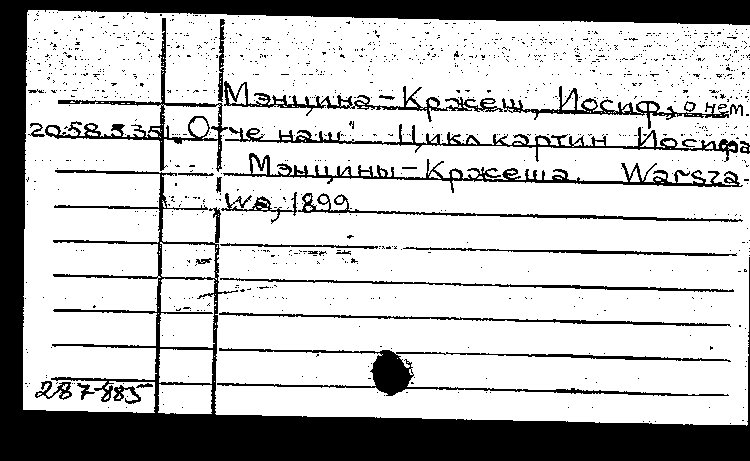 Мэнцина-Кржеш, Иосиф, о нем.
20.58.5.351 „Отче наш" Цикл картин Иосифа
Мэнцины-Кржеша. Warsza-
wa, 1899.
287-885